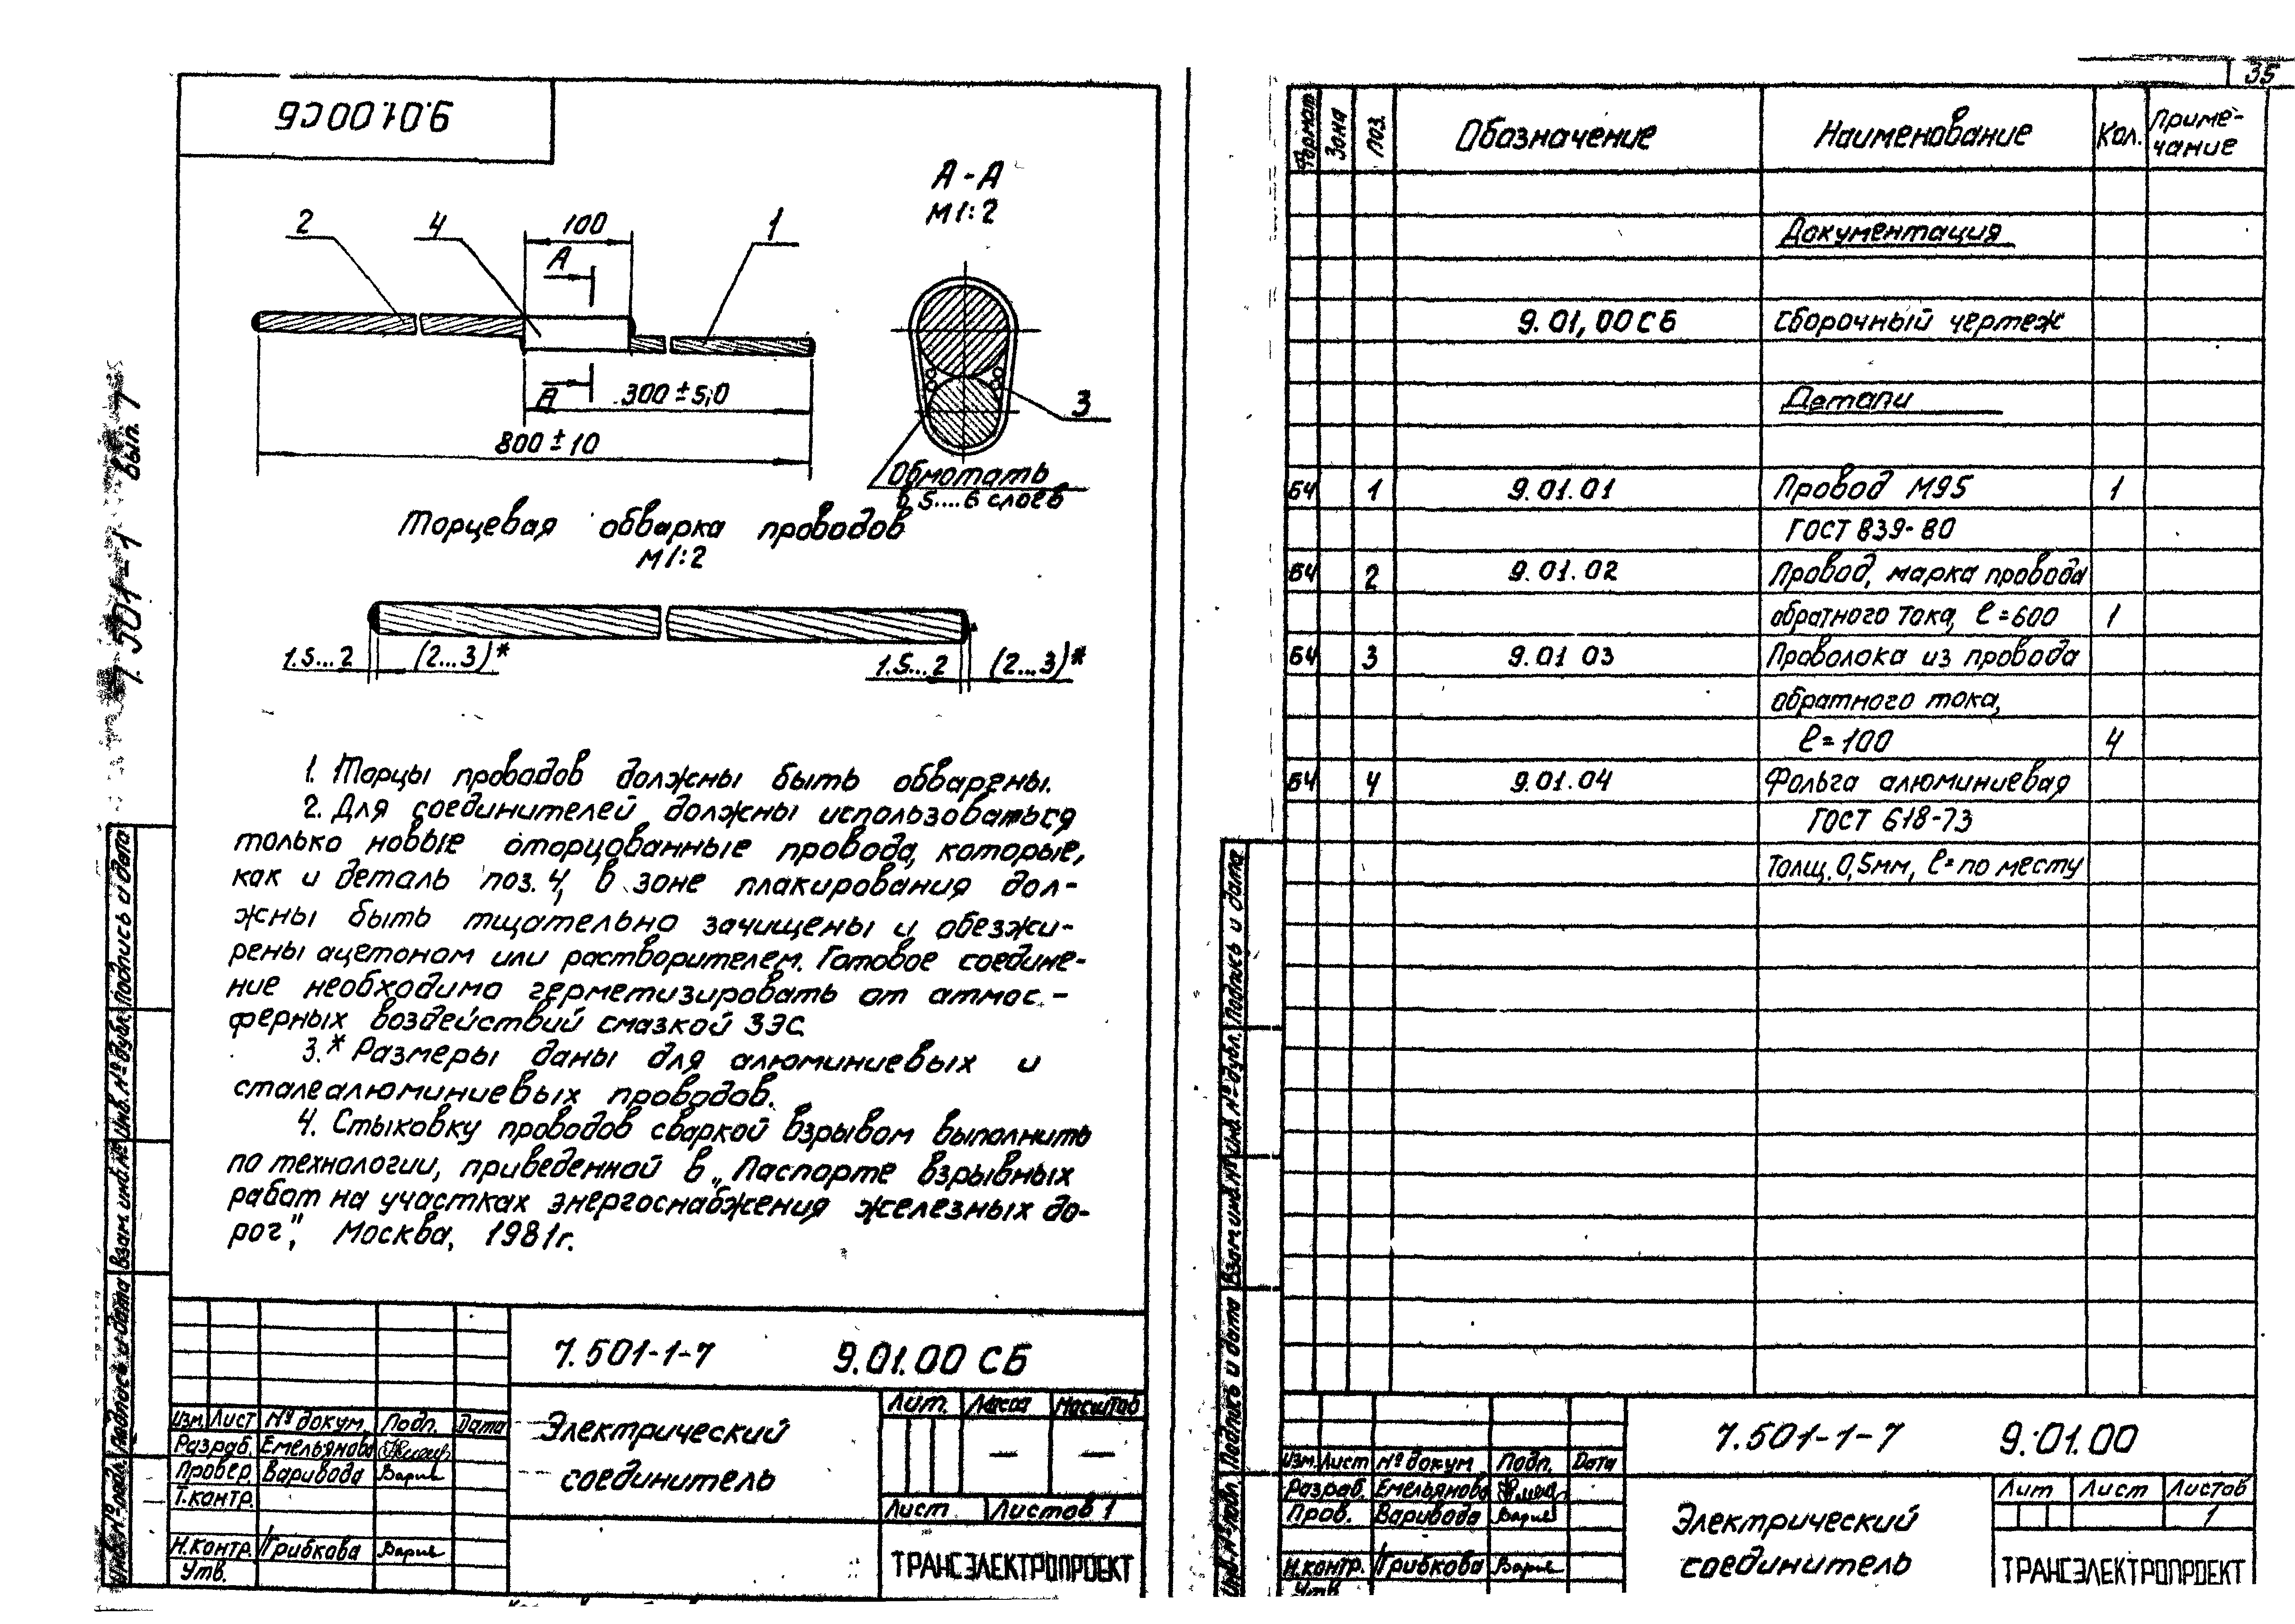 9.01.00СБ
А-А
М1:2
2
4
100
1
А
А
300±5,0
800±10
3
Обмотать
в 5....6 слоев
Торцевая обварка проводов
М1:2
1.5...2
(2...3)*
1.5...2
(2...3)*
1. Торцы проводов должны быть обварены.
2. Для соединителей должны использоваться
только новые оторцованные провода, которые,
как и деталь поз. 4, в зоне плакирования дол-
жны быть тщательно зачищены и обезжи-
рены ацетоном или растворителем. Готовое соедине-
ние необходимо герметизировать от атмос-
ферных воздействий смазкой ЗЭС
3.* Размеры даны для алюминиевых и
сталеалюминиевых проводов.
4. Стыковку проводов сваркой взрывом выполнить
по технологии, приведенной в „Паспорте взрывных
работ на участках энергоснабжения железных до-
рог", Москва, 1981г.
7.501-1 вып. 7
Подпись и дата
Инв. № дубл.
Взам. инв. №
Подпись и дата
Инв. № подл.
7.501-1-7 9.01.00 СБ
Изм. Лист № докум. Подп. Дата
Разраб. Емельянова
Провер. Варивода Варив
Т.контр.
Н.контр. Грибкова Варив
Утв.
Электрический
соединитель
Лит. Масса Масштаб
— —
Лист Листов 1
ТРАНСЭЛЕКТРОПРОЕКТ
35
Формат Зона Поз. Обозначение Наименование Кол. Приме-
чание
Документация
9.01,00СБ Сборочный чертеж
Детали
БЧ 1 9.01.01 Провод М95 1
ГОСТ 839-80
БЧ 2 9.01.02 Провод, марка провода
обратного тока, ℓ=600 1
БЧ 3 9.01 03 Проволока из провода
обратного тока,
ℓ=100 4
БЧ 4 9.01.04 Фольга алюминиевая
ГОСТ 618-73
толщ. 0,5мм, ℓ=по месту
Подпись и дата
Инв. № дубл.
Взам инв. №
Подпись и дата
Инв. № подл.
7.501-1-7 9.01.00
Изм. Лист № докум Подп. Дата
Разраб. Емельянова
Пров. Варивода Варив
Н.контр. Грибкова Варив
Утв
Электрический
соединитель
Лит Лист Листов
1
ТРАНСЭЛЕКТРОПРОЕКТ